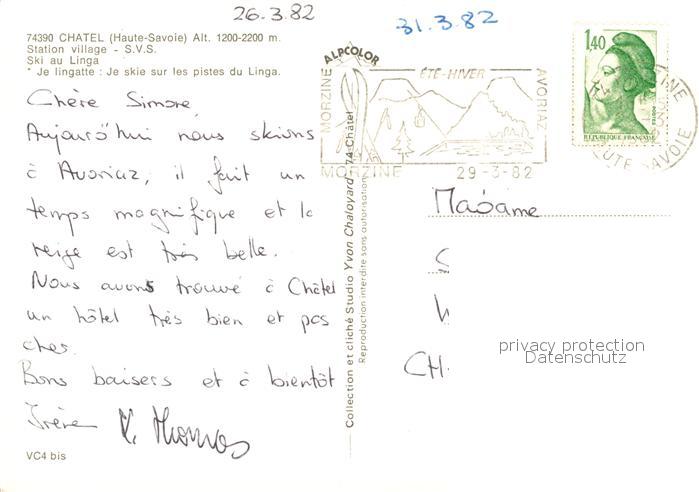 26.3.82
31.3.82
74390 CHATEL (Haute-Savoie) Alt. 1200-2200 m.
Station village - S.V.S.
Ski au Linga
" Je lingatte : Je skie sur les pistes du Linga.
Chère Simone,
Aujourd'hui nous skions
à Avoriaz, il fait un
temps magnifique et la
neige est très belle.
Nous avons trouvé à Châtel
un hôtel très bien et pas
cher.
Bons baisers et à bientôt
Irène
Thomas
VC4 bis
ALPCOLOR
Collection et cliché Studio Yvon Chaloyard - 74-Châtel
Reproduction interdite sans autorisation
MORZINE
ÉTÉ-HIVER
AVORIAZ
MORZINE
29-3-82
1,40
REPUBLIQUE FRANÇAISE
HAUTE SAVOIE
Madame
CH
privacy protection
Datenschutz